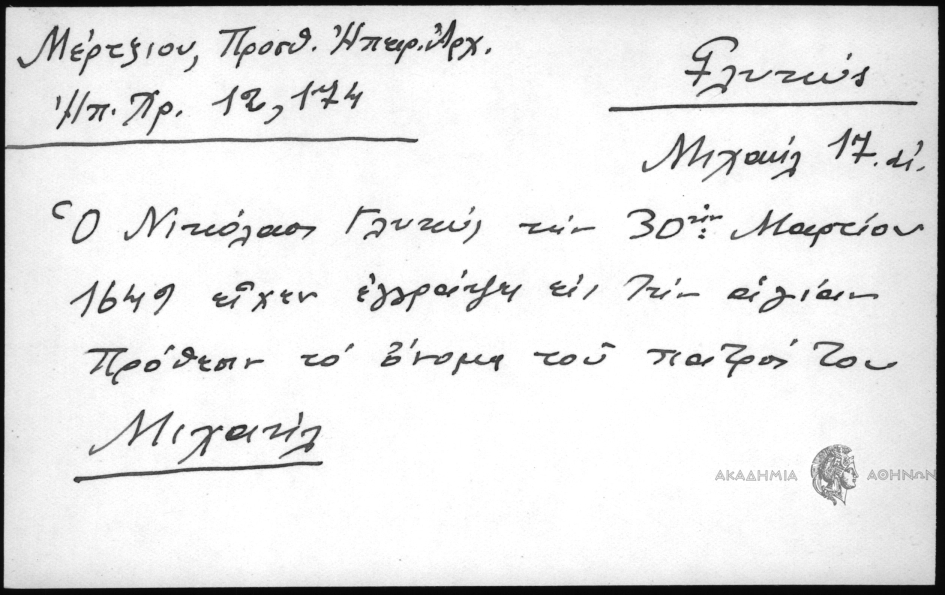 Μέρτζιου, Προσθ. Ἠπειρ. Ἀρχ.
Ἠπ. Χρ. 12, 174
Γλυκύς
Μιχαήλ 17. αἰ.
Ὁ Νικόλαος Γλυκύς τήν 30ήν: Μαρτίου
1649 εἶχεν ἐγγράψει εἰς τήν ἁγίαν
Πρόθεσιν τό ὄνομα τοῦ πατρός του
Μιχαήλ
ΑΚΑΔΗΜΙΑ ΑΘΗΝΩΝ